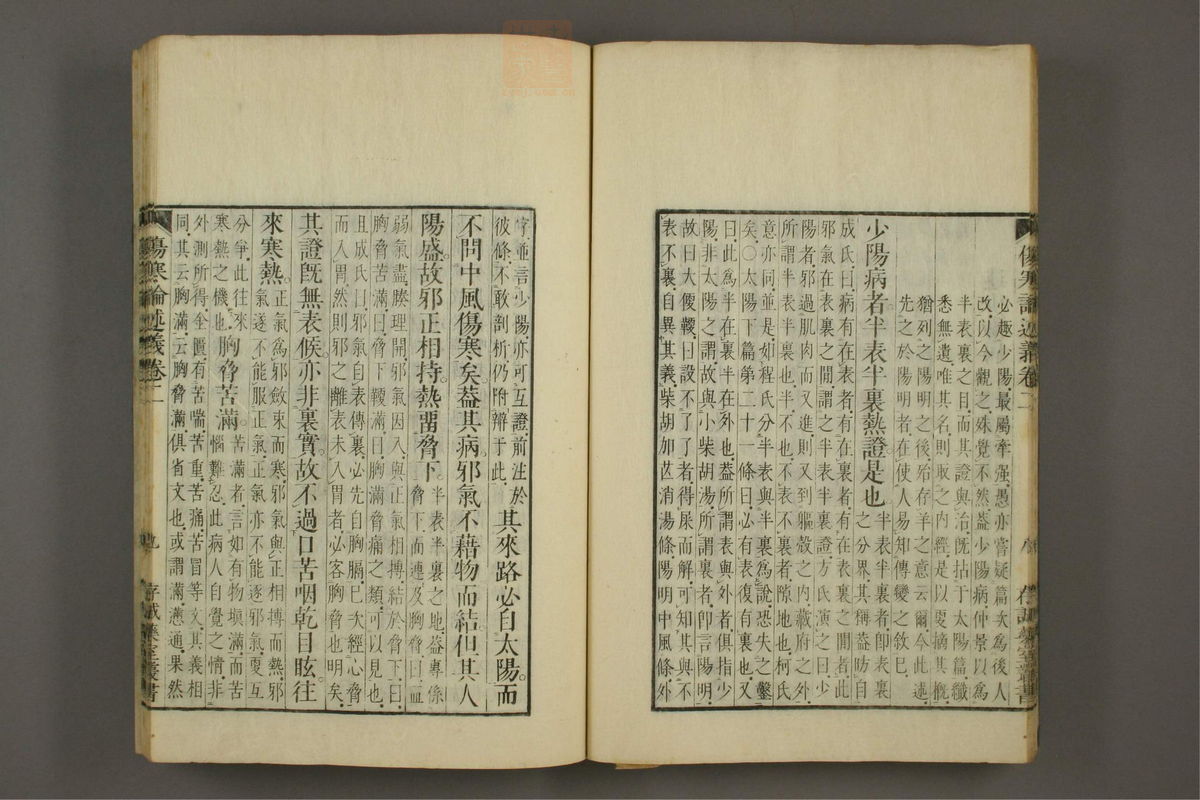 傷寒論述義卷二
八
存誠藥室叢書
必趣少陽最屬牽强愚亦嘗疑篇次為後人
改以今觀之殊覺不然葢少陽病仲景以為
半表裏之目而其證與治旣拈于太陽篇纖
悉無遺唯其名則取之內經是以更摘其槪
猶列之陽明之後殆存羊之意云爾今此述
先之於陽明者在使人易知傳變之敘巳
少陽病者半表半裏熱證是也半表半裏者卽表裏之分界其稱葢昉自
成氏曰病有在表者有在裏者有在表裏之間者此
邪氣在表裏之間謂之半表半裏證方氏演之曰少
陽者邪過肌肉而又進則又到軀殼之內藏府之外
所謂半表半裏也半不也不表不裏者隙地也柯氏
意亦同並是如程氏分半表與半裏爲說恐失之鑿
矣○太陽下篇第二十一條曰必有表復有裏也又
曰此為半在裏半在外也葢所謂表與外者俱指少
陽非太陽之謂故與小柴胡湯所謂裏者卽言陽明
故曰大便鞕曰設不了了者得屎而解可知其與不
表不裏自異其義柴胡加芒消湯條陽明中風條外
字並言少陽亦可互證前注於彼條不敢剖析仍附辯于此其來路必自太陽而
不問中風傷寒矣葢其病邪氣不藉物而結但其人
陽盛故邪正相持熱畱脅下半表半裏之地葢專係脅下而連及胸脅曰血
弱氣盡腠理開邪氣因入與正氣相摶結於脅下曰
胸脅苦滿曰脅下鞕滿曰胸滿脅痛之類可以見也
且成氏曰邪氣自表傳裏必先自胸膈巳次經心脅
而入胃然則邪之離表未入胃者必客胸脅也明矣
其證旣無表候亦非裏實故不過口苦咽乾目眩往
來寒熱正氣爲邪斂束而寒邪氣與正相摶而熱邪氣遂不能服正氣正氣亦不能逐邪氣更互
分爭此往來寒熱之機也胸脅苦滿苦滿者言如有物塡滿而苦惱難忍此病人自覺之情非
外測所得金匱有苦喘苦重苦痛苦冒等文其義相
同其云胸滿云胸脅滿俱省文也或謂滿懣通果然
傷寒論述義卷二
九
存誠藥室叢書